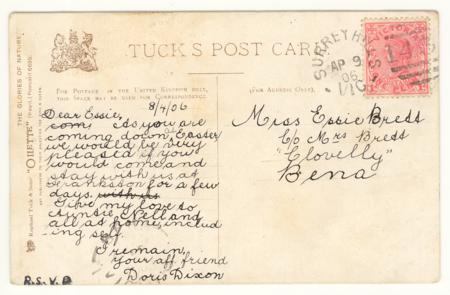 TUCK'S POST CARD
THE GLORIES OF NATURE.
Raphael Tuck & Sons' "OILETTE" [Regd.] Postcard 6995.
FOR POSTAGE IN THE UNITED KINGDOM ONLY,
THIS SPACE MAY BE USED FOR CORRESPONDENCE.
(FOR ADDRESS ONLY.)
SURREY HILLS
AP 9
06
VIC
VICTORIA
8/4/06
Dear Essie,
As you are
coming down Easter
we would be very
pleased if you
would come and
stay with us at
Frankston for a few
days. with us
Give my love to
Auntie Nell and
all at home, includ
-ing self.
I remain,
your aff friend
Doris Dixon
R.S.V.P
Miss Essie Brett
C/o Mrs Brett
"Clovelly"
Bena